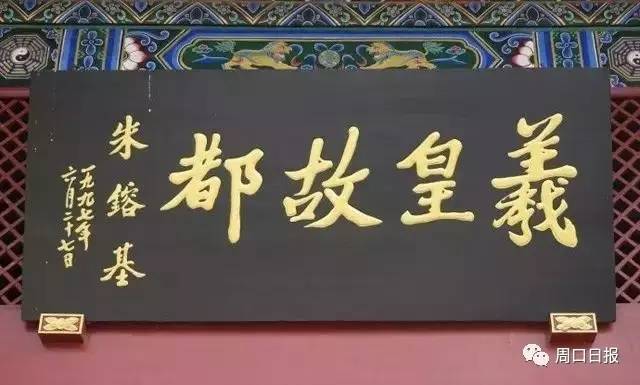 羲皇故都
朱鎔基
一九九七年
六月二十七日
周口日报